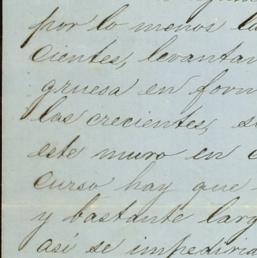 por lo menos la
cientes, levantar
gruesa en form
las crecientes, s
este muro en c
curso hay que
y bastante larg
así se impediria